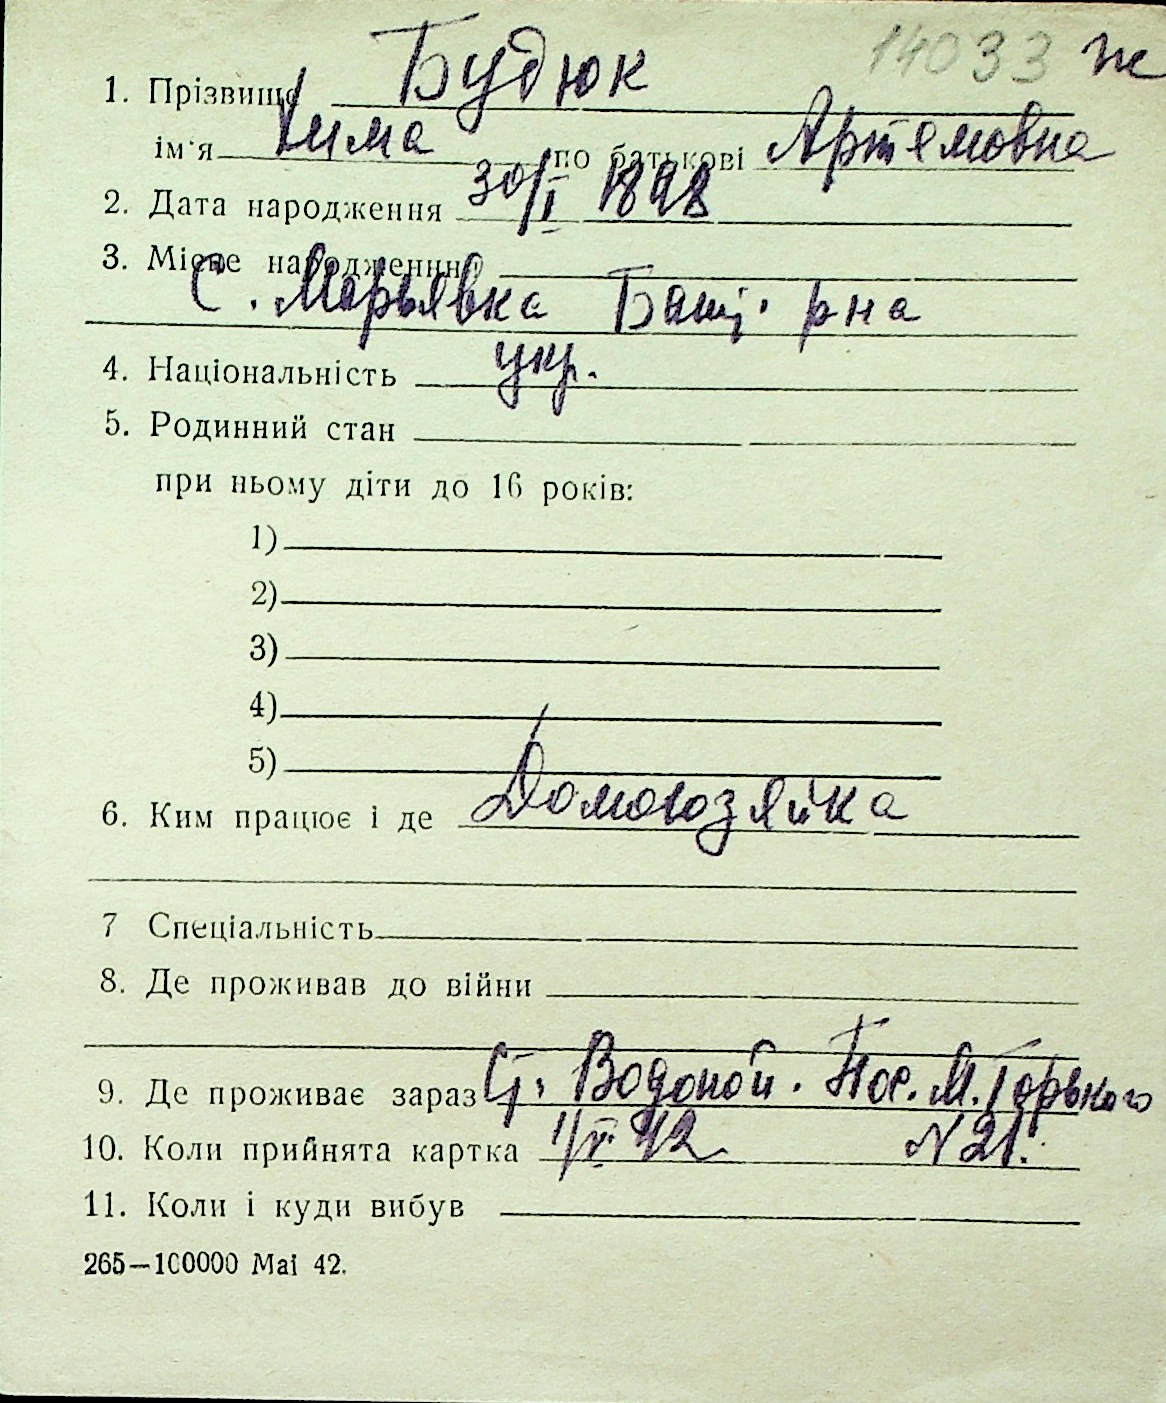 14033 ж
1. Прізвище Будюк
ім'я Хима по батькові Артемовна
2. Дата народження 30/I 1898
3. Місце народження
С. Марьявка Башт. рна
4. Національність укр.
5. Родинний стан
при ньому діти до 16 років:
1)
2)
3)
4)
5)
6. Ким працює і де Домохозяйка
7 Спеціальність
8. Де проживав до війни
9. Де проживає зараз Ст. Водопой. Пос. М. Горького
10. Коли прийнята картка 42 N 21.
11. Коли і куди вибув
265—100000 Mai 42.